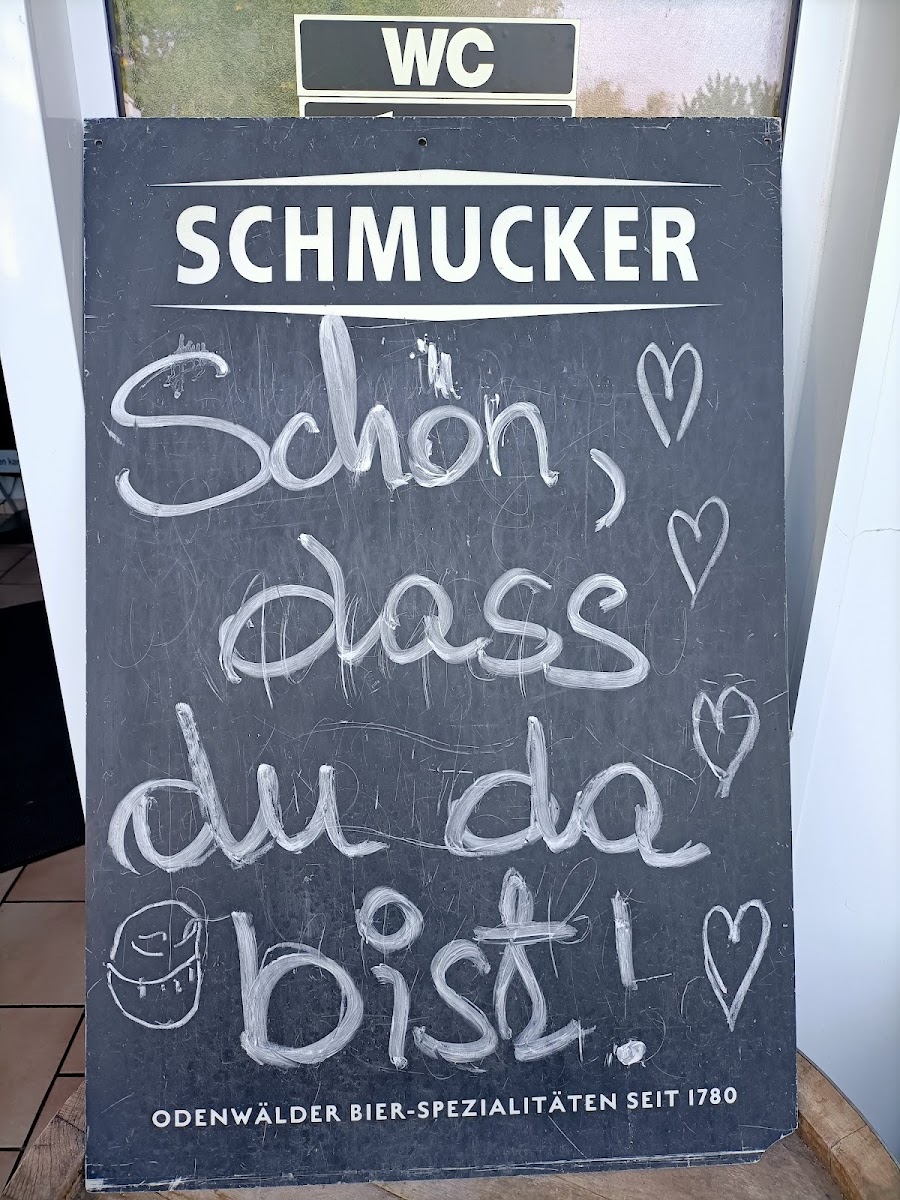 WC
SCHMUCKER
Schön,
dass
du da
bist!
ODENWÄLDER BIER-SPEZIALITÄTEN SEIT 1780